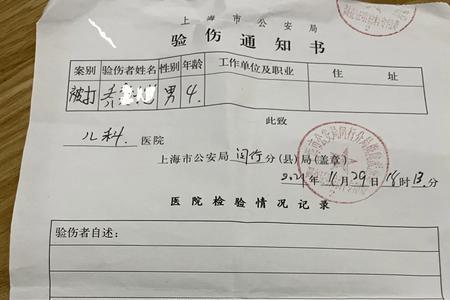 上海市公安局
验伤通知书
案别 验伤者姓名 性别 年龄 工作单位及职业 住址
被打 男 4.
此致
儿科 医院
上海市公安局 闵行 分(县)局(盖章)
2021年11月29日18时13分
医院检验情况记录
验伤者自述: